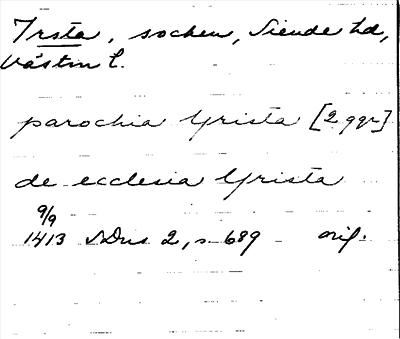 Irsta, socken, Siende hd,
Västm l.
parochia Yrista [2 ggr]
de ecclesia Yrista
9/9
1413 SDns 2, s. 689 orig.